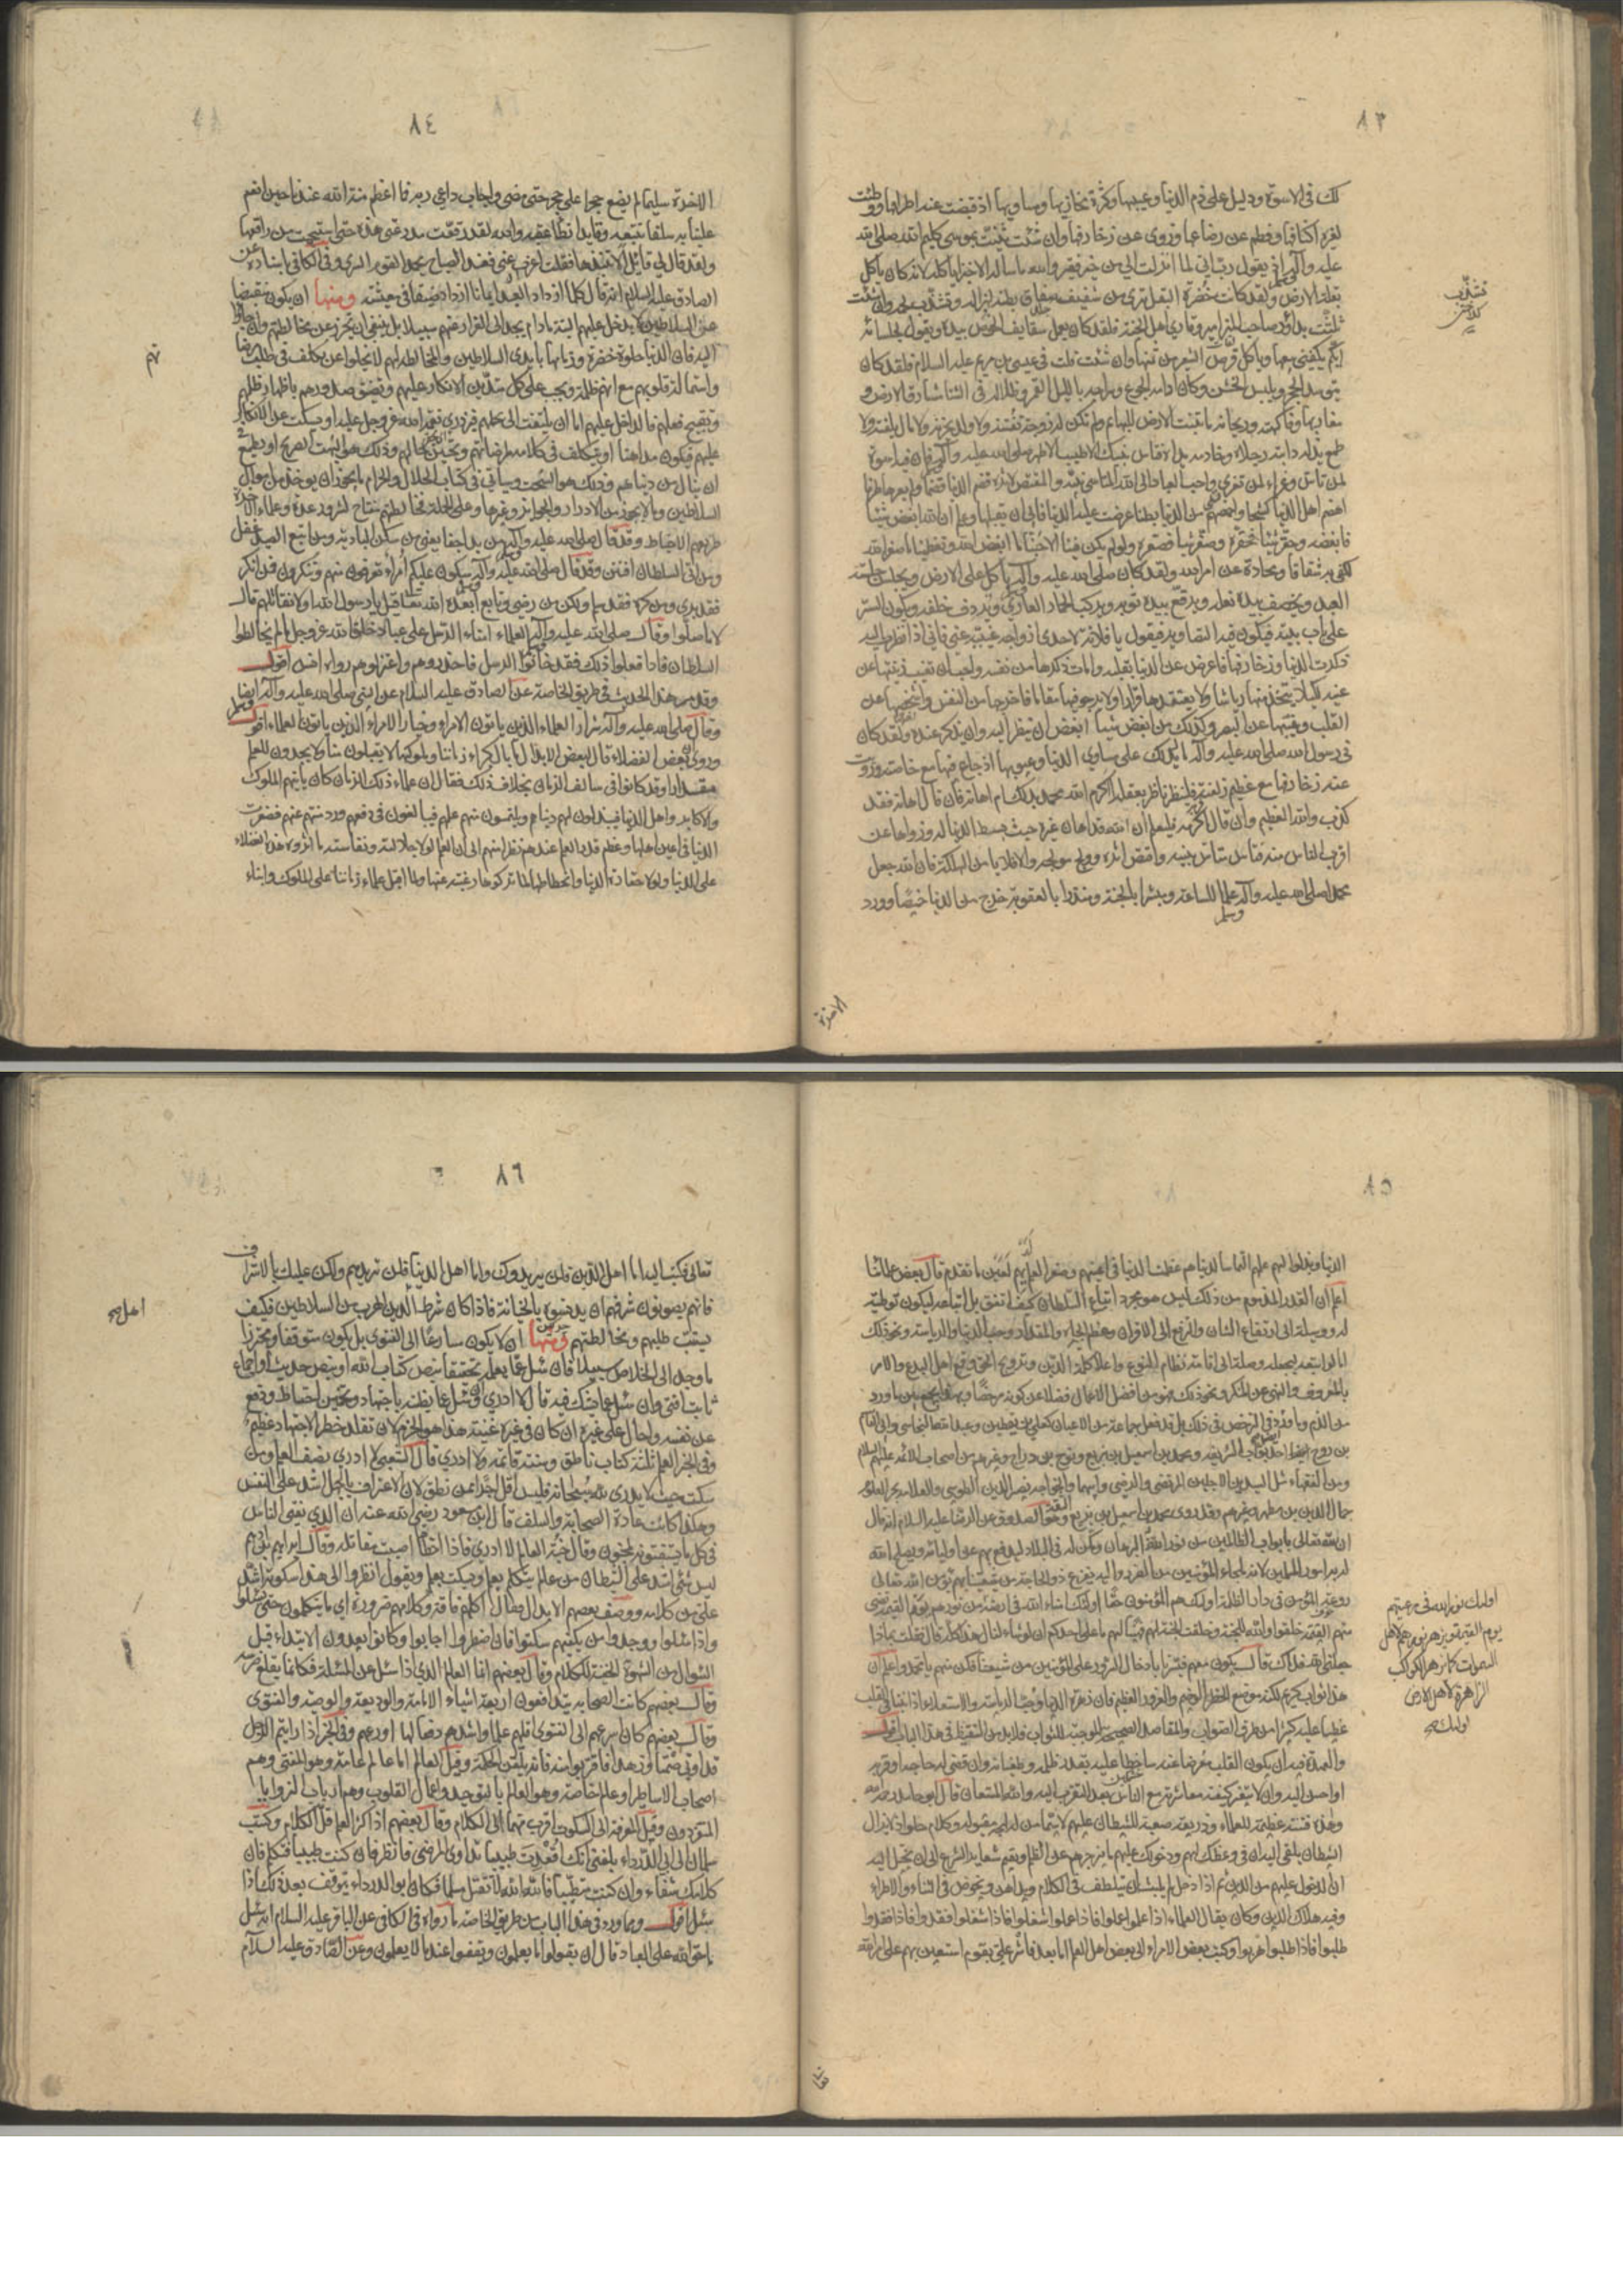 ٨٣
لك في الاسوة ودليل على ذم الدنيا وعيبها وكثرة مخازيها ومساويها اذ قبضت عنه اطرافها ووطئت
لغيره اكنافها وفطم عن رضاعها وزوى عن زخارفها وان شئت ثنيت بموسى كليم الله صلى الله
عليه وآله اذ يقول رب اني لما انزلت الي من خير فقير والله ما سأله الا خبزا يأكله لانه كان يأكل
بقلة الارض ولقد كانت خضرة البقل ترى من شفيف صفاق بطنه لهزاله وتشذب لحمه وان شئت
ثلثت بداود صاحب المزامير وقاري اهل الجنة فلقد كان يعمل سفايف الخوص بيده ويقول لجلسائه
ايكم يكفيني بيعها ويأكل قرص الشعير من ثمنها وان شئت قلت في عيسى بن مريم عليه السلام فلقد كان
يتوسد الحجر ويلبس الخشن وكان ادامه الجوع وسراجه بالليل القمر وظلاله في الشتا مشارق الارض و
مغاربها وفاكهته وريحانه ما تنبت الارض للبهائم ولم تكن له زوجة تفتنه ولا ولد يحزنه ولا مال يلفته ولا
طمع يذله دابته رجلاه وخادمه يداه فتأس بنبيك الاطيب الاطهر صلى الله عليه وآله فان فيه اسوة
لمن تأسى وعزاء لمن تعزى واحب العباد الى الله المتأسي بنبيه والمقتص لاثره قضم الدنيا قضما ولم يعرها طرفا
اهضم اهل الدنيا كشحا واخمصهم من الدنيا بطنا عرضت عليه الدنيا فابى ان يقبلها وعلم ان الله ابغض شيئا
فابغضه وحقر شيئا فحقره وصغر شيئا فصغره ولو لم يكن فينا الا حبنا ما ابغض الله وتعظيمنا ما صغر الله
لكفى به شقاقا ومحادة عن امر الله ولقد كان صلى الله عليه وآله يأكل على الارض ويجلس جلسة
العبد ويخصف بيده نعله ويرقع بيده ثوبه ويركب الحمار العاري ويردف خلفه ويكون الستر
على باب بيته فيكون فيه التصاوير فيقول يا فلانة لاحدى ازواجه غيبيه عني فاني اذا نظرت اليه
ذكرت الدنيا وزخارفها فاعرض عن الدنيا بقلبه وامات ذكرها من نفسه واحب ان تغيب زينتها عن
عينه لكيلا يتخذ منها رياشا ولا يعتقدها قرارا ولا يرجو فيها مقاما فاخرجها من النفس واشخصها عن
القلب وغيبها عن البصر وكذلك من ابغض شيئا ابغض ان ينظر اليه وان يذكر عنده ولقد كان
في رسول الله صلى الله عليه وآله ما يدلك على مساوي الدنيا وعيوبها اذ جاع فيها مع خاصته وزويت
عنه زخارفها مع عظيم زلفته فلينظر ناظر بعقله اكرم الله محمدا بذلك ام اهانه فان قال اهانه فقد
كذب والله العظيم وان قال اكرمه فليعلم ان الله قد اهان غيره حيث بسط الدنيا له وزواها عن
اقرب الناس منه فتأس متأس بنبيه واقتص اثره وولج مولجه والا فلا يأمن الهلكة فان الله جعل
محمدا صلى الله عليه وآله علما للساعة ومبشرا بالجنة ومنذرا بالعقوبة خرج من الدنيا خميصا وورد
وسلم
الاخرة
٨٤
الاخرة سليما لم يضع حجرا على حجر حتى مضى واجاب داعي ربه فما اعظم منة الله عندنا حين انعم
علينا به سلفا نتبعه وقايدا نطأ عقبه والله لقد رقعت مدرعتي هذه حتى استحييت من راقعها
ولقد قال لي قائل الا تنبذها فقلت اعزب عني فعند الصباح يحمد القوم السرى وفي الكافي باسناده عن
الصادق عليه السلام انه قال كلما ازداد العبد ايمانا ازداد ضيقا في معيشته ومنها ان يكون منقبضا
عن السلاطين لا يدخل عليهم البتة ما دام يجد الى الفرار عنهم سبيلا بل ينبغي ان يحترز عن مخالطتهم وان جاؤا
اليه فان الدنيا حلوة خضرة وزمامها بايدي السلاطين والمخالط لهم لا يخلوا عن تكلف في طلب مرضا
واستمالة قلوبهم مع انهم ظلمة ويجب على كل متدين الانكار عليهم وتضييق صدورهم باظهار ظلمهم
وتقبيح فعلهم فالداخل عليهم اما ان يلتفت الى تجملهم فيزدري نعمة الله عز وجل عليه او يسكت عن الانكار
عليهم فيكون مداهنا او يتكلف في كلامه لمرضاتهم وتحسين حالهم وذلك هو البهت الصريح او يطمع في
ان ينال من دنياهم وذلك هو السحت وسيأتي في كتاب الحلال والحرام ما يجوز ان يؤخذ من اموال
السلاطين وما لا يجوز من الادرار والجوائز وغيرها وعلى الجملة فمخالطتهم مفتاح لشرور عدة وعلماء الاخرة
طريقهم الاحتياط وقد قال صلى الله عليه وآله من بدا جفا يعني من سكن البادية ومن اتبع الصيد غفل
ومن اتى السلطان افتتن وقد قال صلى الله عليه وآله سيكون عليكم امراء تعرفون منهم وتنكرون فمن انكر
فقد بري ومن كره فقد سلم ولكن من رضي وتابع ابعده الله تعالى قيل يا رسول الله اولا نقاتلهم قال
لا ما صلوا وقال صلى الله عليه وآله العلماء امناء الرسل على عباد الله عز وجل ما لم يخالطوا
السلطان فاذا فعلوا ذلك فقد خانوا الرسل فاحذروهم واعتزلوهم رواه انس اقول
وقد مر هذا الحديث في طريق الخاصة عن الصادق عليه السلام عن النبي صلى الله عليه وآله ايضا
وقال صلى الله عليه وآله شرار العلماء الذين يأتون الامراء وخيار الامراء الذين يأتون العلماء اقول
وروي بعض الفضلاء قال لبعض الابدال ما بال كبراء زماننا وملوكها لا يقبلون منا ولا يجدون للعلم
مقدارا وقد كانوا في سالف الزمان بخلاف ذلك فقال ان علماء ذلك الزمان كان يأتيهم الملوك
والاكابر واهل الدنيا فيبذلون لهم دنياهم ويلتمسون منهم علمهم فيبالغون في دفعهم ورد منتهم عنهم فصغرت
الدنيا في اعين اهلها وعظم قدر العلم عندهم نظرا منهم الى ان العلم لولا جلالته ونفاسته ما اثروه هؤلاء الفضلاء
على الدنيا ولولا حقارة الدنيا وانحطاطها لما تركوها رغبة عنها ولما اقبل علماء زماننا على الملوك وابناء
٨٥
الدنيا وبذلوا لهم علمهم التماسا لدنياهم عظمت الدنيا في اعينهم وصغر العلم لديهم لعين ما تقدم قال بعض علمائنا
اعلم ان القدر المذموم من ذلك ليس هو مجرد اتباع السلطان كيف اتفق بل اتباعه ليكون توطئة
له ووسيلة الى ارتفاع الشان والترفع الى الاقران وعظم الجاه والمقدار وحب الدنيا والرياسة ونحو ذلك
اما لو اتبعه ليجعله وصلة الى اقامة نظام النوع واعلاء كلمة الدين وترويج الحق وقمع اهل البدع والامر
بالمعروف والنهي عن المنكر ونحو ذلك فهو من افضل الاعمال فضلا عن كونه مرخصا وبهذا يجمع بين ما ورد
من الذم وما ورد في الترخص في ذلك بل قد فعل جماعة من الاعيان كعلي بن يقطين وعبد الله النجاشي وابي القاسم
بن روح احد الابواب الشريفة ومحمد بن اسمعيل بن بزيع ونوح بن دراج وغيرهم من اصحاب الائمة عليهم السلام
ومن الفقهاء مثل السيدين الاجلين المرتضى والرضي وابيهما والخواجه نصير الدين الطوسي والعلامة بحر العلوم
جمال الدين بن مطهر وغيرهم وقد روى محمد بن اسمعيل بن بزيع وهو الثقة الصدوق عن الرضا عليه السلام انه قال
ان لله تعالى بابواب الظالمين من نور الله به البرهان ومكن له في البلاد ليدفع بهم عن اوليائه ويصلح الله
به امور المسلمين لانه ملجاء المؤمنين من الضرر واليه يفزع ذو الحاجة من شيعتنا بهم يؤمن الله تعالى
روعة المؤمن في دار الظلمة اولئك هم المؤمنون حقا اولئك امناء الله في ارضه من نورهم يوم القيمة تضئ
منهم القيمة خلقوا والله للجنة وخلقت الجنة لهم فهنيئا لهم ما على احدكم ان لو شاء لنال هذا كله قال قلت بماذا
جعلني الله فداك قال يكون معهم فيسرنا بادخال السرور على المؤمنين من شيعتنا فكن منهم يا محمد واعلم ان
هذا ثواب كريم لكنه موضع الخطر الوخيم والغرور العظيم فان زهرة الدنيا وحب الرياسة والاستعلاء اذا نبتا في القلب
غطيا عليه كثيرا من طرق الصواب والمقاصد الصحيحة الموجبة للثواب فلا بد من التيقظ في هذا الباب اقول
والعمدة فيه ان يكون القلب معرضا عنه ساخطا عليه بقدر ظلمه وطغيانه وان قضى له حاجة او قربه
او احسن اليه وان لا يتغير كيفية معاشرته مع الناس بعد التقرب اليه والله المستعان قال ابو حامد رحمه الله
وهذه فتنة عظيمة للعلماء وذريعة صعبة للشيطان عليهم لا سيما من له لهجة مقبولة وكلام حلو اذ لا يزال
الشيطان يلقي اليه ان في وعظك لهم ودخولك عليهم ما يزجرهم عن الظلم ويقيم شعاير الشرع الى ان يخيل اليه
ان الدخول عليهم من الدين ثم اذا دخل لم يلبث ان يتلطف في الكلام ويداهن ويخوض في الثناء والاطراء
وفيه هلاك الدين وكان يقال العلماء اذا علموا عملوا فاذا عملوا شغلوا فاذا شغلوا فقدوا فاذا فقدوا
طلبوا فاذا طلبوا هربوا وكتب بعض الامراء الى بعض اهل العلم اما بعد فاشر علي بقوم استعين بهم على امر الله
اولئك نور الله في رعيتهم
يوم القيمة ويزهر نورهم لاهل
السموات كما يزهر الكواكب
الزاهرة لاهل الارض
اولئك صح
تعالى
٨٦
تعالى فكتب اليه اما اهل الدين فلن يريدوك واما اهل الدنيا فلن تريدهم ولكن عليك بالاشراف
فانهم يصونون شرفهم ان يدنسوه بالخيانة فاذا كان شرط الدين الهرب من السلاطين فكيف
يستتب طلبهم ومخالطتهم ومنها ان لا يكون مسارعا الى الفتوى بل يكون متوقفا ومحترزا
ما وجد الى الخلاص سبيلا فان سئل عما يعلمه تحقيقا بنص كتاب الله او بنص حديث او اجماع
ثابت افتى وان سئل عما يشك فيه قال لا ادري وان سئل عما يظنه باجتهاد وتخمين احتاط ودفع
عن نفسه واحال على غيره ان كان في غيره غنية هذا هو الحزم لان تقلد خطر الاجتهاد عظيم
وفي الخبر العلم ثلثة كتاب ناطق وسنة قائمة ولا ادري قال الشعبي لا ادري نصف العلم ومن
سكت حيث لا يدري لله سبحانه فليس اقل اجرا ممن نطق لان الاعتراف بالجهل اشد على النفس
وهكذا كانت عادة الصحابة والسلف قال ابن مسعود رضي الله عنه ان الذي يفتي الناس
في كل ما يستفتونه لمجنون وقال جنة العالم لا ادري فاذا اخطأها اصيبت مقاتله وقال ابراهيم بن ادهم
ليس شئ اشد على الشيطان من عالم يتكلم بعلم ويسكت بعلم ويقول انظروا الى هذا سكوته اشد
علي من كلامه ووصف بعضهم الابدال فقال اكلهم فاقة وكلامهم ضرورة اي ما يتكلمون حتى يسئلوا
واذا سئلوا ووجدوا من يكفيهم سكتوا فان اضطروا اجابوا وكانوا يعدون الابتداء قبل
السؤال من الشهوة الخفية للكلام وقال بعضهم انما العالم الذي اذا سئل عن المسئلة فكانما يقلع ضرسه
وقال بعضهم كانت الصحابة يتدافعون اربعة اشياء الامامة والوديعة والوصية والفتوى
وقال بعضهم كان اسرعهم الى الفتوى اقلهم علما واشدهم دفعا لها اورعهم وفي الخبر اذا رايتم الرجل
قد اوتي صمتا وزهدا فاقتربوا منه فانه يلقن الحكمة وقيل العالم اما عالم عامة وهو المفتي وهم
اصحاب الاساطين او عالم خاصة وهو العالم بالتوحيد واعمال القلوب وهم ارباب الزوايا
المتفردون وقيل المعرفة الى السكوت اقرب منها الى الكلام وقال بعضهم اذا كثر العلم قل الكلام وكتب
سلمان الى ابي الدرداء بلغني انك اقعدت طبيبا تداوي المرضى فانظر فان كنت طبيبا فتكلم فان
كلامك شفاء وان كنت متطببا فالله الله لا تقتل مسلما فكان ابو الدرداء يتوقف بعد ذلك اذا
سئل اقول ومما ورد في هذا الباب من طريق الخاصة ما رواه في الكافي عن الباقر عليه السلام انه سئل
ما حق الله على العباد قال ان يقولوا ما يعلمون ويقفوا عند ما لا يعلمون وعن الصادق عليه السلام